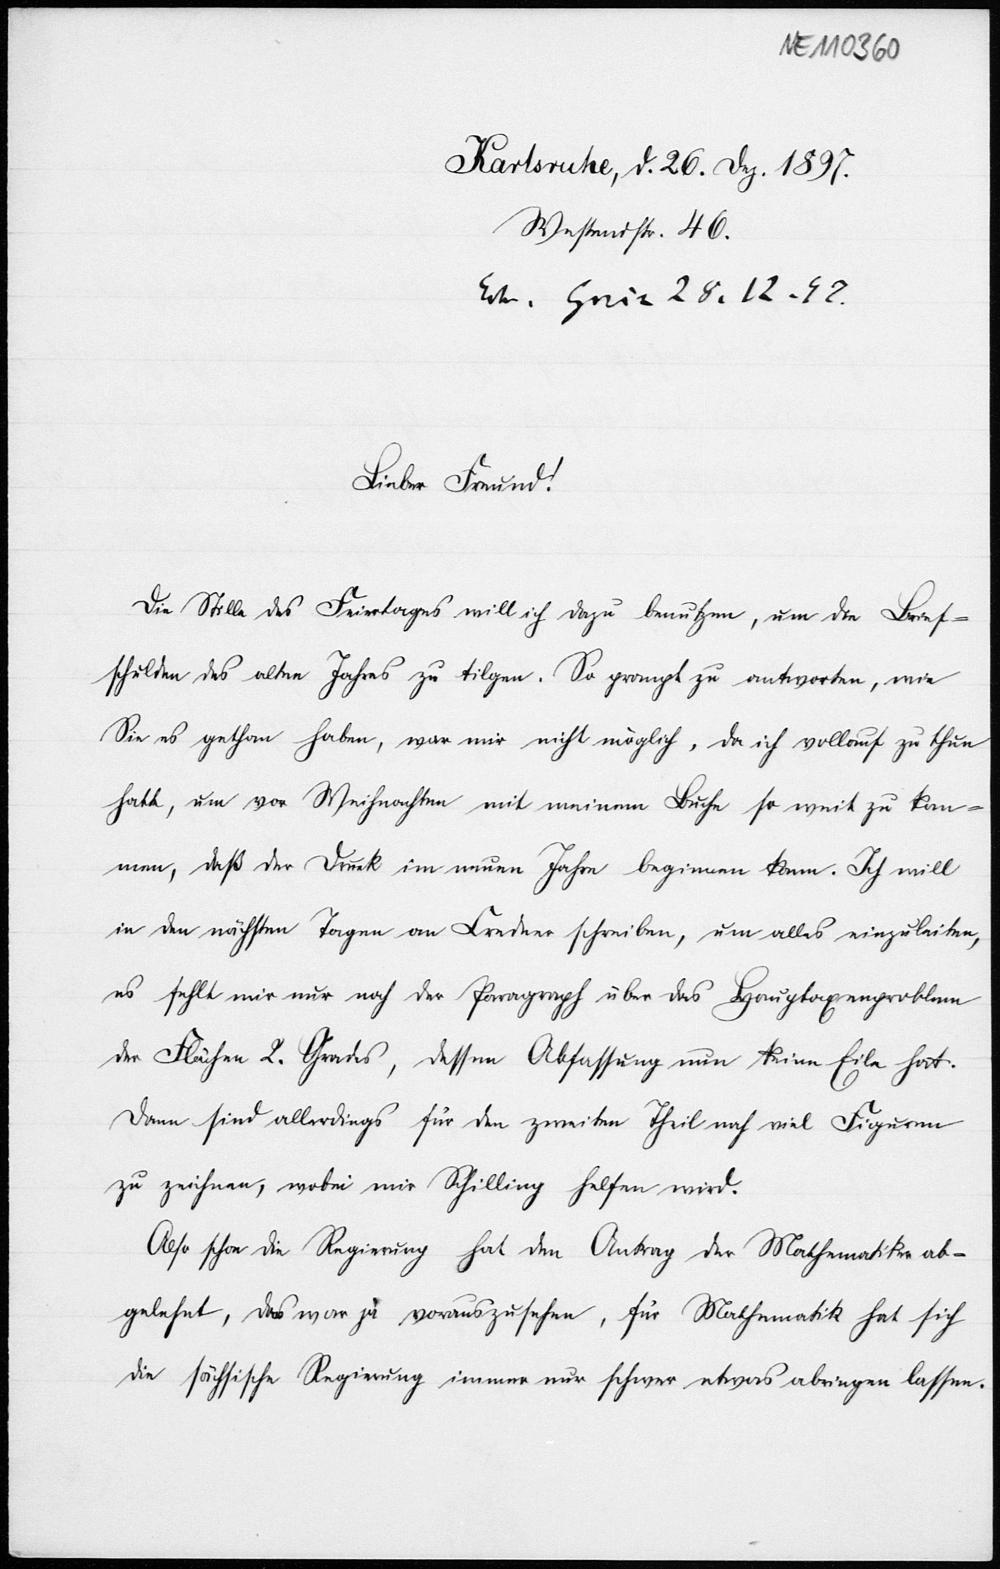 NE110360
Karlsruhe, d. 26. Dez. 1897.
Westendstr. 46.
28.12.97.
Lieber Freund!
Die Stille des Feiertages will ich dazu benutzen, um die Brief=
schulden des alten Jahres zu tilgen. So prompt zu antworten, wie
Sie es gethan haben, war mir nicht möglich, da ich vollauf zu thun
hatte, um vor Weihnachten mit meinem Buche so weit zu kom=
men, daß der Druck im neuen Jahre beginnen kann. Ich will
in den nächsten Tagen an Credner schreiben, um alles einzuleiten,
es fehlt mir nur noch der Paragraph über das Hauptaxenproblem
der Flächen 2. Grades, dessen Abfassung nun keine Eile hat.
Dann sind allerdings für den zweiten Theil noch viel Figuren
zu zeichnen, wobei mir Schilling helfen wird.
Also schon die Regierung hat den Antrag der Mathematiker ab-
gelehnt, das war ja vorauszusehen, für Mathematik hat sich
die sächsische Regierung immer nur schwer etwas abringen lassen.